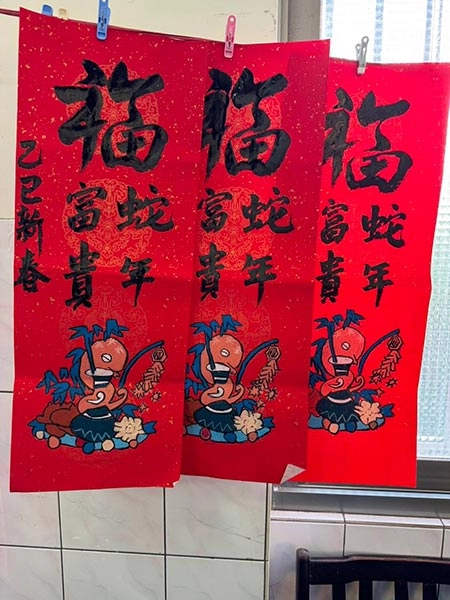 福
蛇年
富貴
乙巳新春
福
蛇年
富貴
福
蛇年
富貴